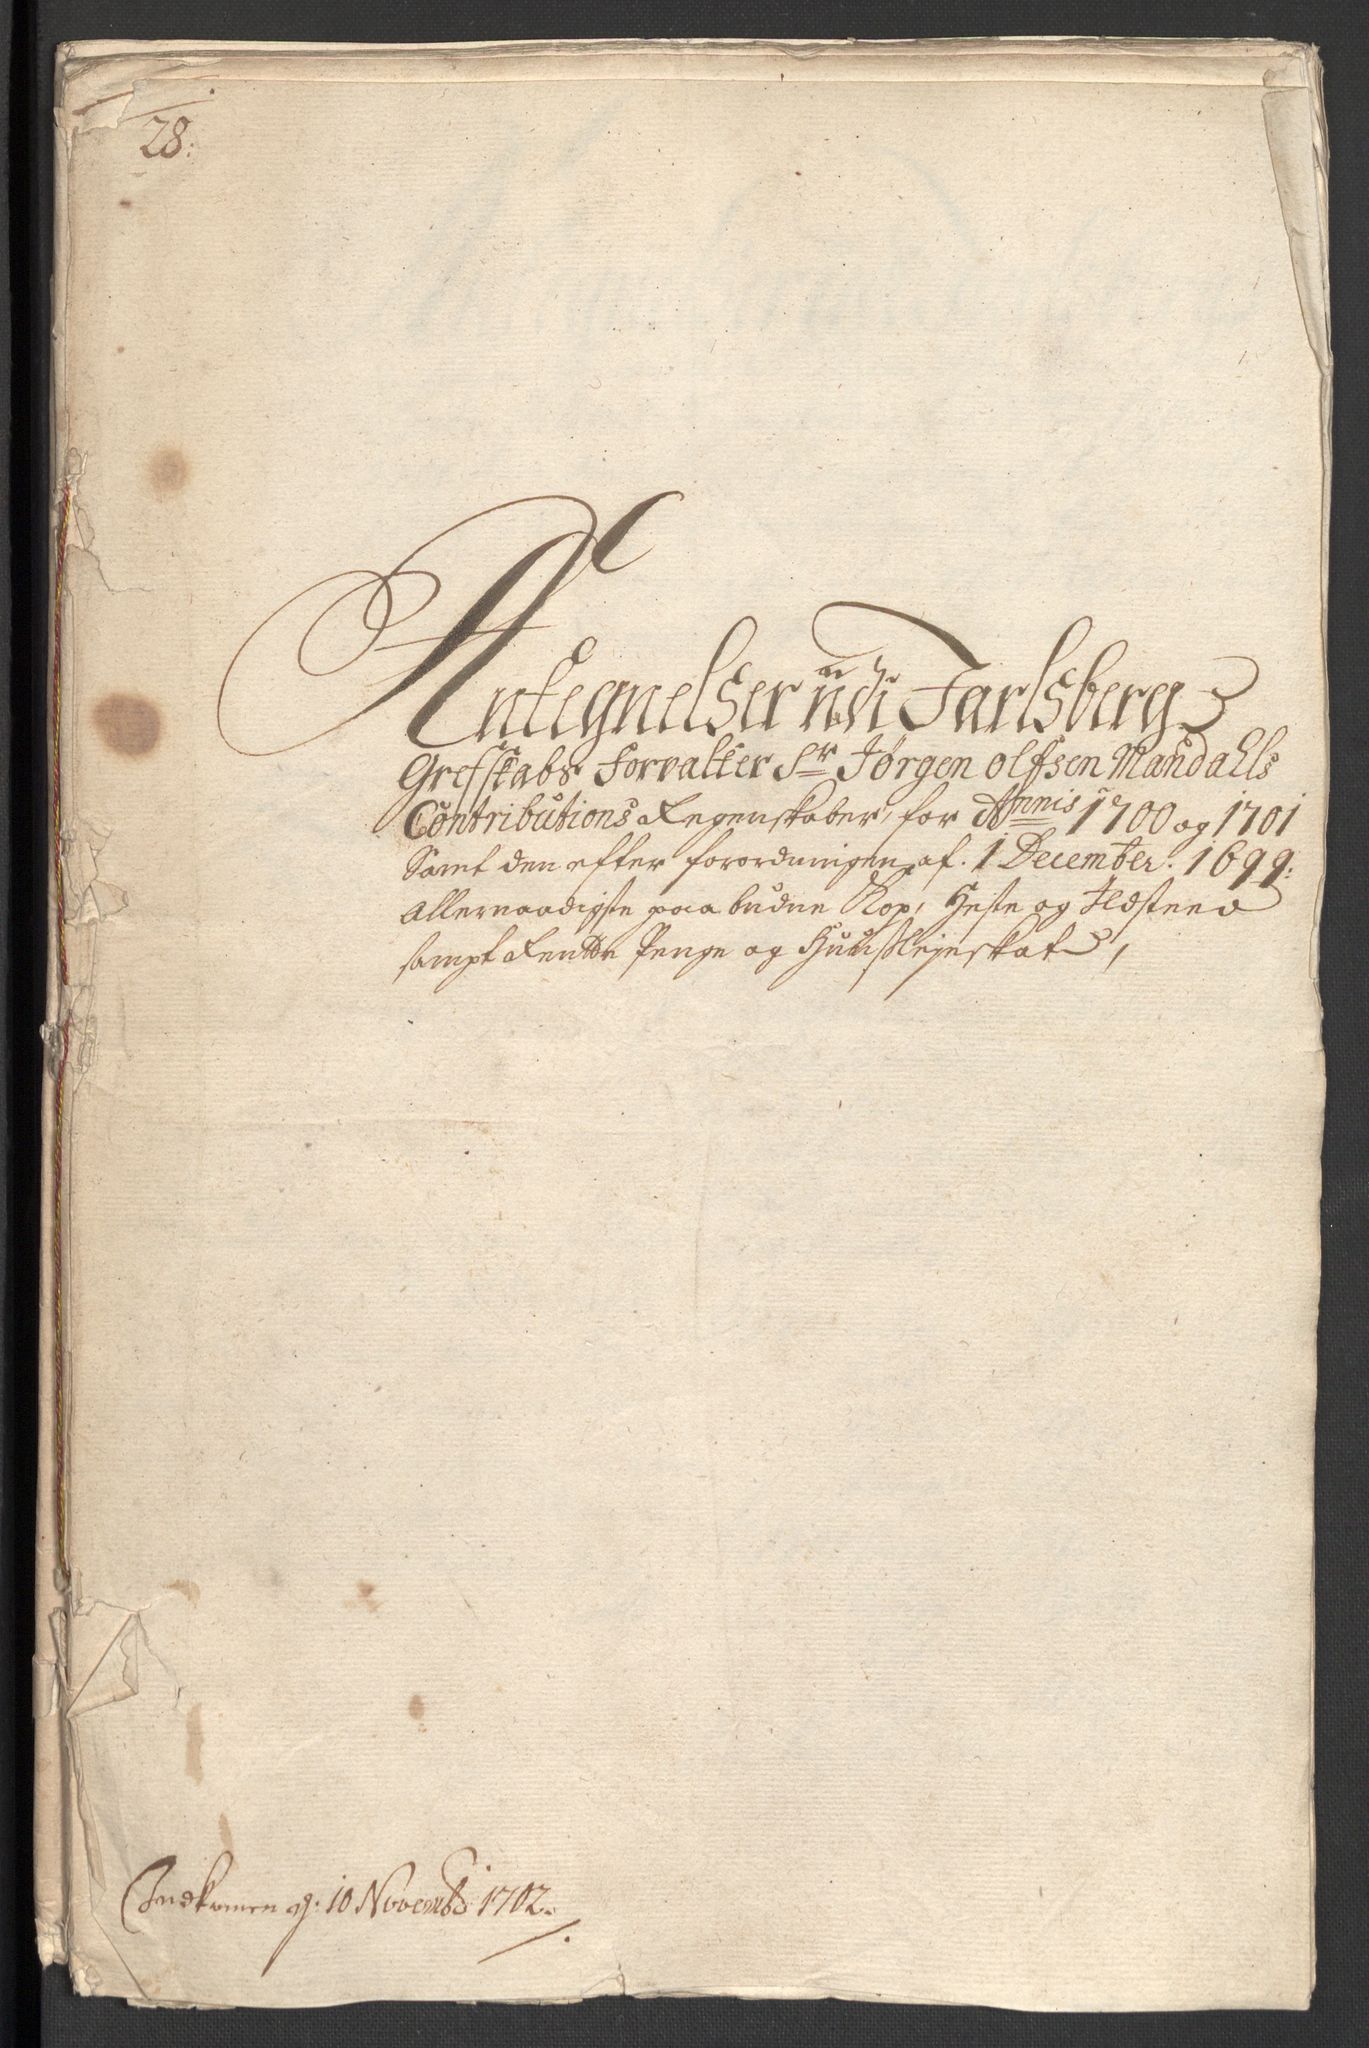 28:
Antegnelser udi Jarlsberg
Grefskabs Forvalter Sr Jørgen Olfsen Mandahls
Contributions Regenskaber, for Annis 1700 og 1701
Samt den efter forordningen af. 1 December. 1699:
allernaadigste paabudne Kop, Heste og Ildsteed
sampt Rente Penge og Huusslejeskatt,
Indkomen d: 10 Novemb 1702.